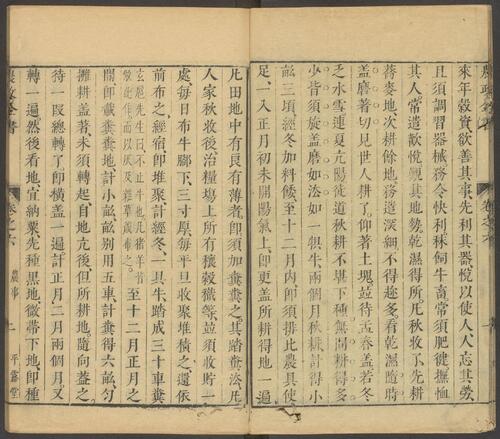 農政全書
卷之六
來年穀資欲善其事先利其器悅以使人人忘其勞
且須調習器械務令快利秣飼牛畜常須肥健撫恤
其人常遣歡悅觀其地勢乾濕得所凡秋收了先耕
蕎麥地次耕餘地務遣深細不得趁多看乾濕隨時
蓋磨著切見世人耕了仰著土塊並待孟春蓋若冬
乏水雪連夏亢陽徒道秋耕不堪下種無問耕得多
少皆須旋蓋磨如法如一俱牛兩個月秋耕計得小
畝三頃經冬加料餵至十二月內即須排比農具使
足一入正月初未開陽氣上即更蓋所耕得地一遍
凡田地中有良有薄者即須加糞糞之其踏糞法凡
人家秋收後治糧塲上所有穰穀等並須收貯一
處每日布牛脚下三寸厚每平旦收聚堆積之還依
前布之經宿即堆聚計經冬一具牛踏成三十車糞
玄扈先生曰不止牛也凡猪羊皆
倣此作而以灰及雜草奉之 至十二月正月之
間即載糞糞地計小畝畝別用五車計糞得六畝勻
攤耕蓋著未須轉起自地亢後但所耕地隨向蓋之
待一段總轉了即橫蓋一遍計正月二月兩個月又
轉一遍然後看地宜納粟先種黑地微帶下地即種
農政全書
卷之六
農事
平露堂